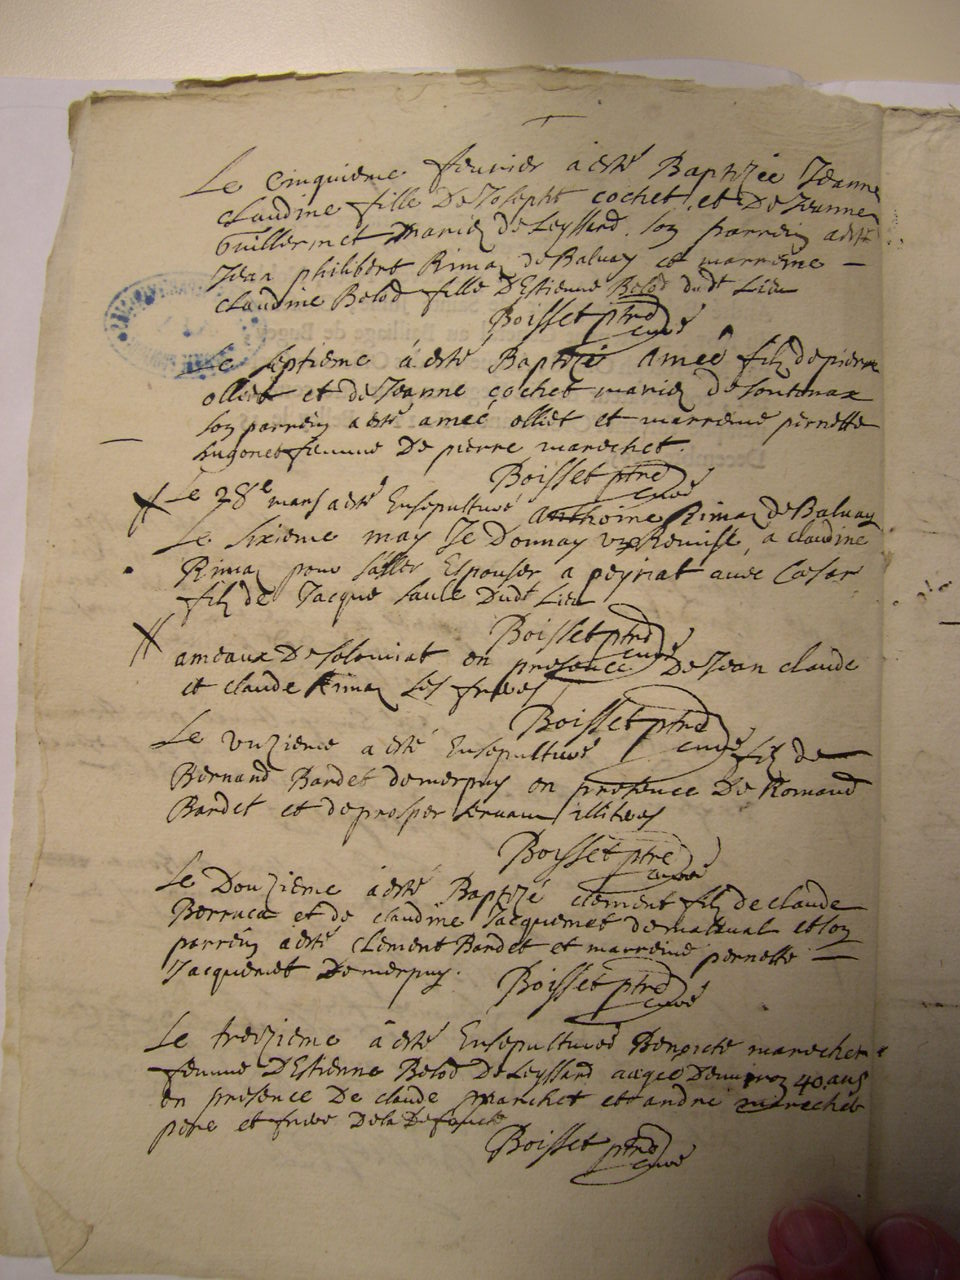 Le cinquieme feurier à esté Baptizée Jeanne
claudine fille De Joseph cochet et De Jeanne
Guillermet mariez de Leyssard. son parrein a esté
Jean philibert Rimaz de Baluay et marreine —
claudine Belod fille D'Estienne Belod dudt Lieu
Boisset ptre curé
Le septieme à esté Baptizé Ameé filz de pierre
olliet et de Jeanne cochet mariez de
son parrein a esté ameé olliet et marreine pernette
hugonet femme De pierre marechet.
Boisset ptre curé
Le 28e mars a esté Ensepulturé anthoine Rimaz de Baluay
Le sixieme may Je Donnay remise, a claudine
Rimaz pour Espouser a peyriat auec Cesar
filz de Jacque Dudt Lieu
Boisset ptre curé
ameaux De solomiat en presence De Jean claude
et claude Rimaz Les freres
Boisset ptre curé
Le vnzieme a esté Ensepulturé filz de
Bernand Bardet de merpuy en presence De Romand
Bardet et de prosper illiteres
Boisset ptre curé
Le Douzieme à esté Baptizé clement filz de claude
Berraca et de claudine Jacquemet de et son
parrein a esté clement Bardet et marreine pernette —
Jacquemet De merpuy.
Boisset ptre curé
Le treizieme à esté Ensepulturee Benoiste marechet
femme D'Estienne Belod De Leyssard aagee Denuiron 40 ans
en presence De claude marechet et andre marechet
pere et frere De la Defuncte
Boisset ptre curé